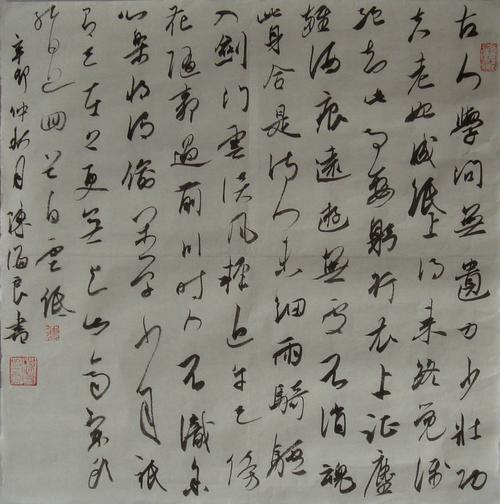 古人學問無遺力少壯功
夫老始成紙上得來終覺淺
絕知此事要躬行衣上征塵
雜酒痕遠遊無處不消魂
此身合是詩人未細雨騎驢
入劍門雲淡風輕近午天傍
花隨柳過前川時人不識余
心樂將謂偷閑學少年祇
有天在上更無與山齊舉頭
紅日近回首白雲低
辛卯仲秋月陳海良書